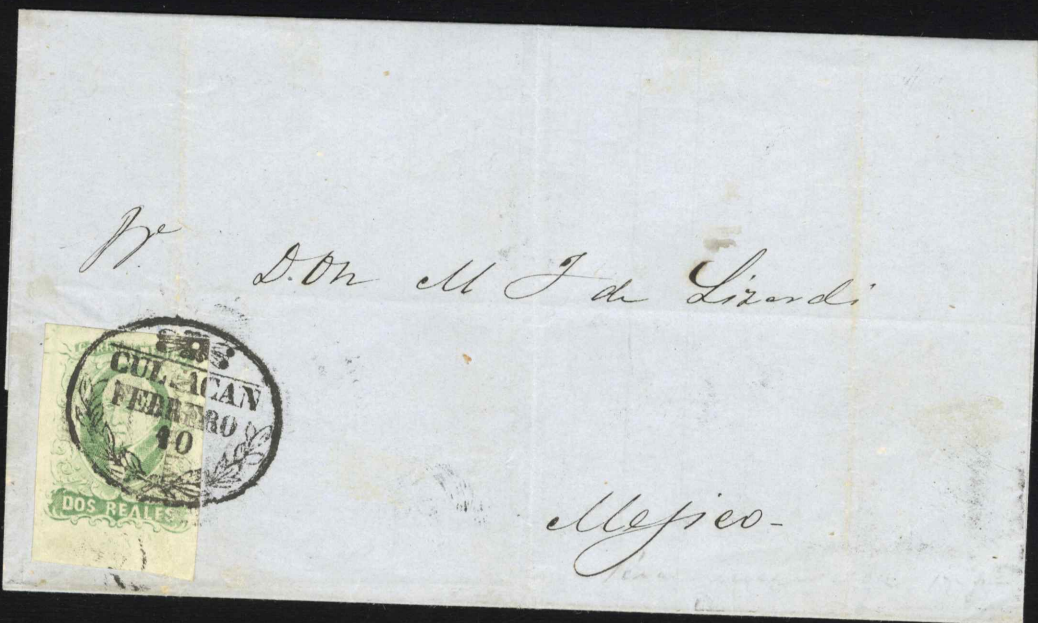 D.On M J de Lizardi
CULIACAN
FEBRERO
10
DOS REALES
Mejico-